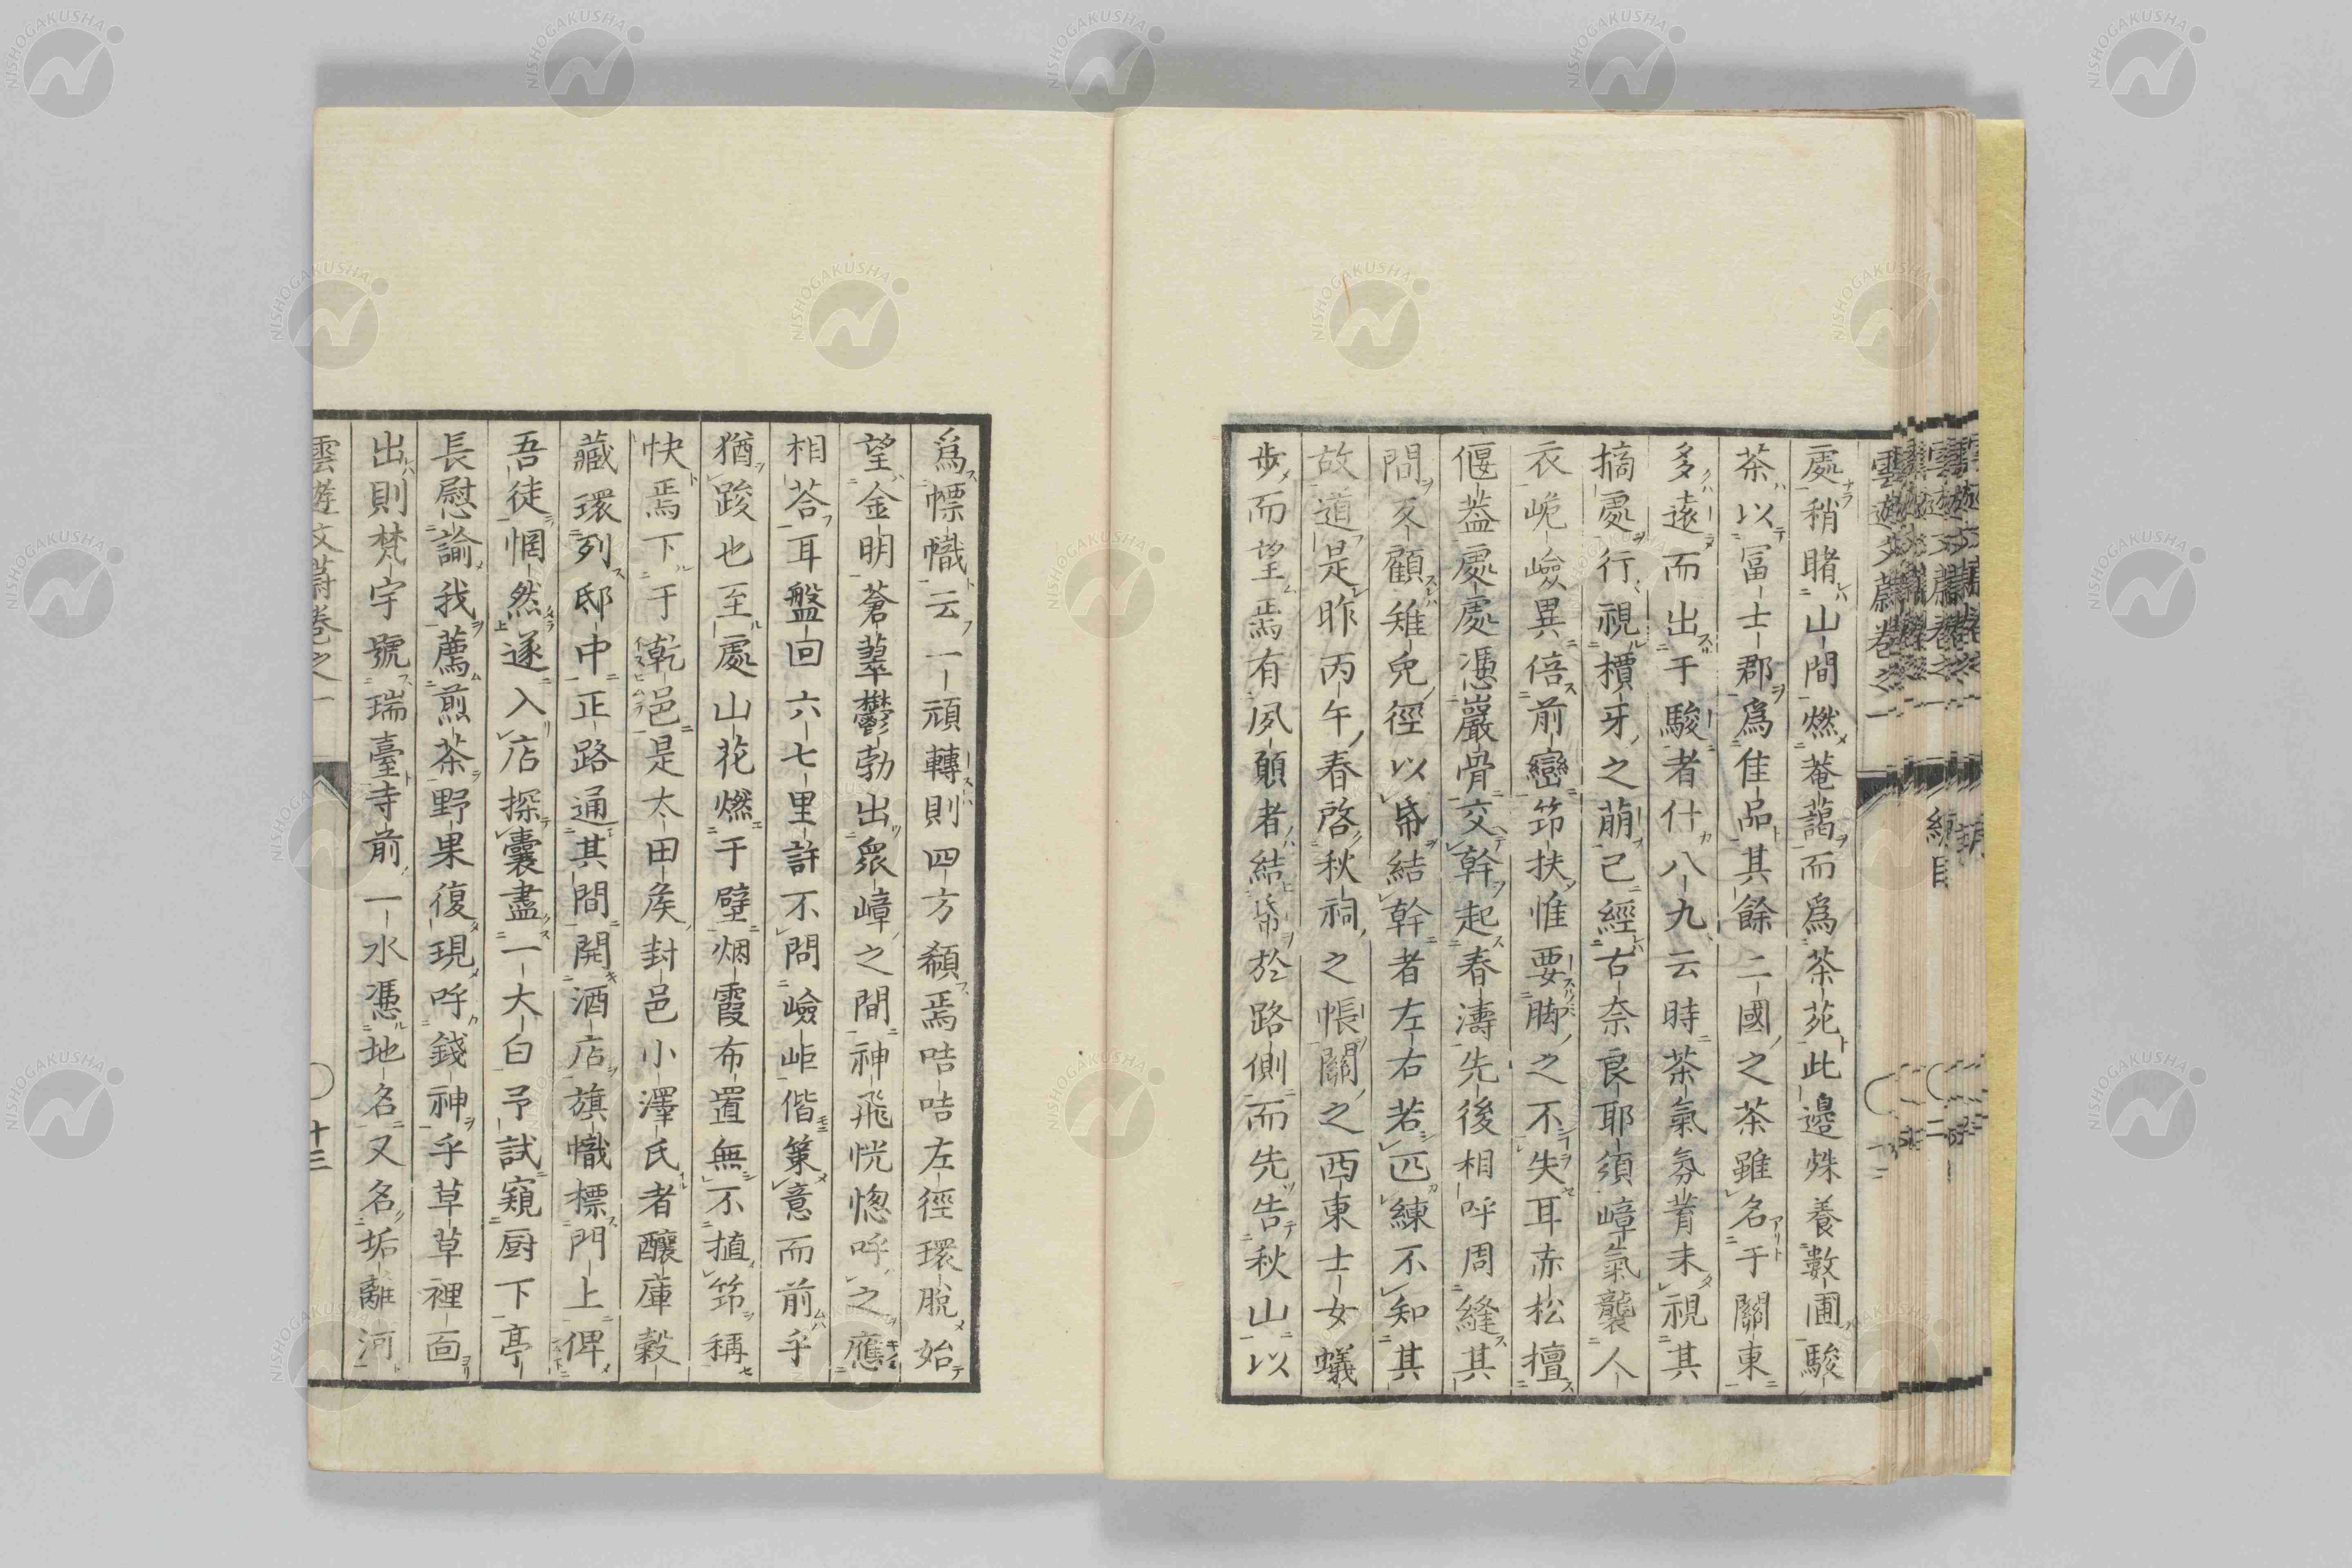 處稍睹山間燃菴藹而爲茶苑此邊殊養數圃駿
茶以冨士郡爲佳品其餘二國之茶雖名于關東
多遠而出于駿者什八九云時茶氣氛菁未視其
摘處行視檟牙之萠已經古奈良耶須嶂氣襲人
衣峗嶮異倍前巒筇扶惟要脚之不失耳赤松擅
偃葢處處憑巖骨交幹起春濤先後相呼周縫其
間反顧雉兔徑以帋結幹者左右若匹練不知其
故道是昨丙午春啓秋祠之帳關之西東士女蟻
步而望焉有夙願者結帋於路側而先告秋山以
爲幖幟云一頑轉則四方纇焉咭咭左徑環脫始
望金明蒼翠鬱勃出眾嶂之間神飛恍惚呼之應
相荅耳盤回六七里許不問嶮岠偕策意而前乎
猶踆也至處山花燃于壁烟霞布置無不植筇稱
快焉下于乾邑是太田矦封邑小澤氏者釀庫穀
藏環列邸中正路通其間開酒店旗幟標門上俾
吾徒惘然遂入店探囊盡一大白予試窺厨下亭
長慰諭我薦煎茶野果復現呼錢神乎草草裡面
出則梵宇號瑞臺寺前一水憑地名又名垢離河
雲遊文蔚卷之一
十三
NISHOGAKUSHA